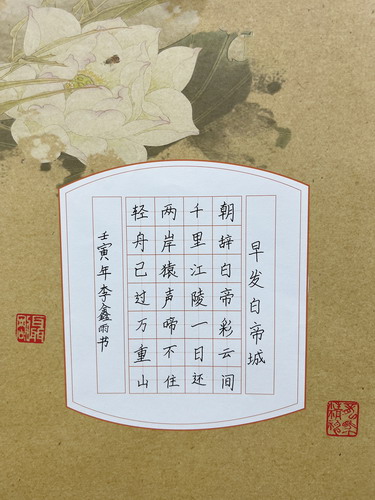 早发白帝城
朝辞白帝彩云间
千里江陵一日还
两岸猿声啼不住
轻舟已过万重山
壬寅年李鑫雨书